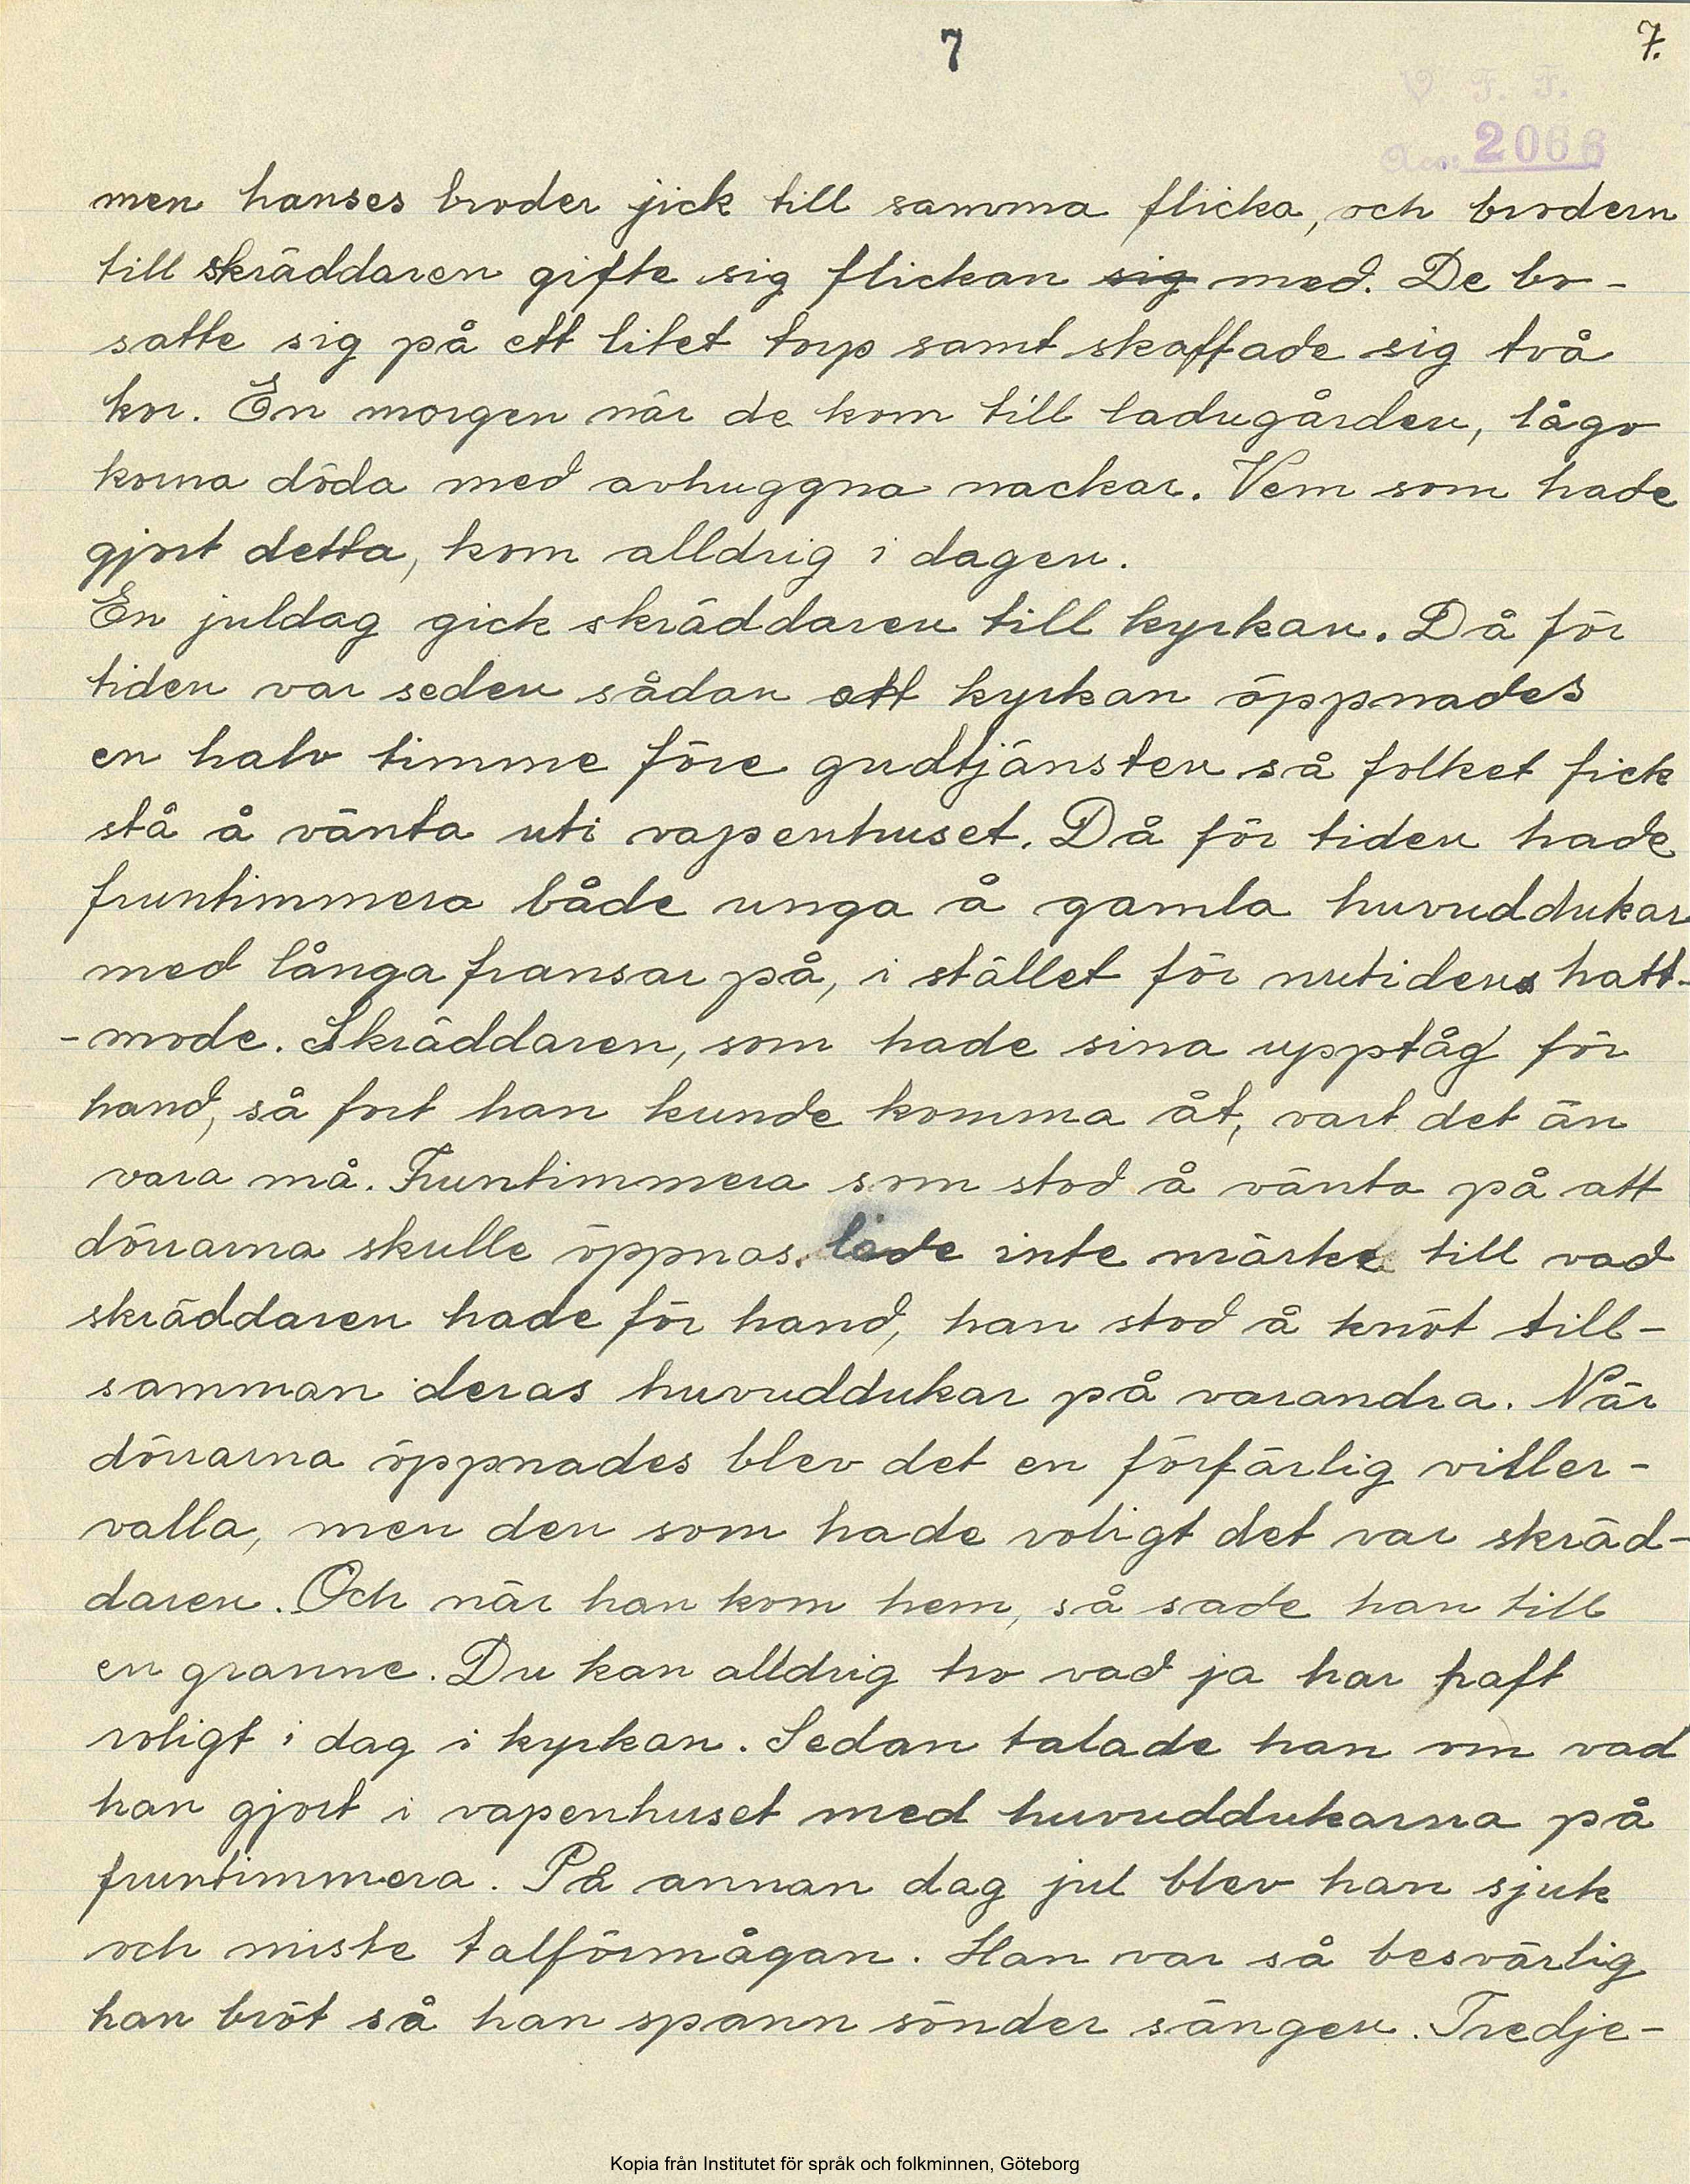 7
7.
V. F. F.
Acc. 2066
men hanses broder jick till samma flicka, och brodern
till skräddaren gifte sig flickan sig med. De bo-
satte sig på ett litet torp samt skaffade sig två
kor. En morgen när de kom till ladugården, lågo
korna döda med avhuggna nackar. Vem som hade
gjort detta, kom alldrig i dagen.
En juldag gick skräddaren till kyrkan. Då för
tiden var seden sådan att kyrkan öppnades
en halv timme före gudtjänsten så folket fick
stå å vänta uti vapenhuset. Då för tiden hade
fruntimmera både unga å gamla huvuddukar
med långa fransar på, i stället för nutidens hatt-
-mode. Skräddaren, som hade sina upptåg för
hand, så fort han kunde komma åt, vart det än
vara må. Fruntimmera som stod å vänta på att
dörrarna skulle öppnas. lade inte märke till vad
skräddaren hade för hand, han stod å knöt till-
samman deras huvuddukar på varandra. När
dörrarna öppnades blev det en förfärlig viller-
valla, men den som hade roligt det var skräd-
daren. Och när han kom hem, så sade han till
en granne. Du kan alldrig tro vad ja har haft
roligt i dag i kyrkan. Sedan talade han om vad
han gjort i vapenhuset med huvuddukarna på
fruntimmera. På annan dag jul blev han sjuk
och miste talförmågan. Han var så besvärlig
han bröt så han spann sönder sängen. Tredje-
Kopia från Institutet för språk och folkminnen, Göteborg